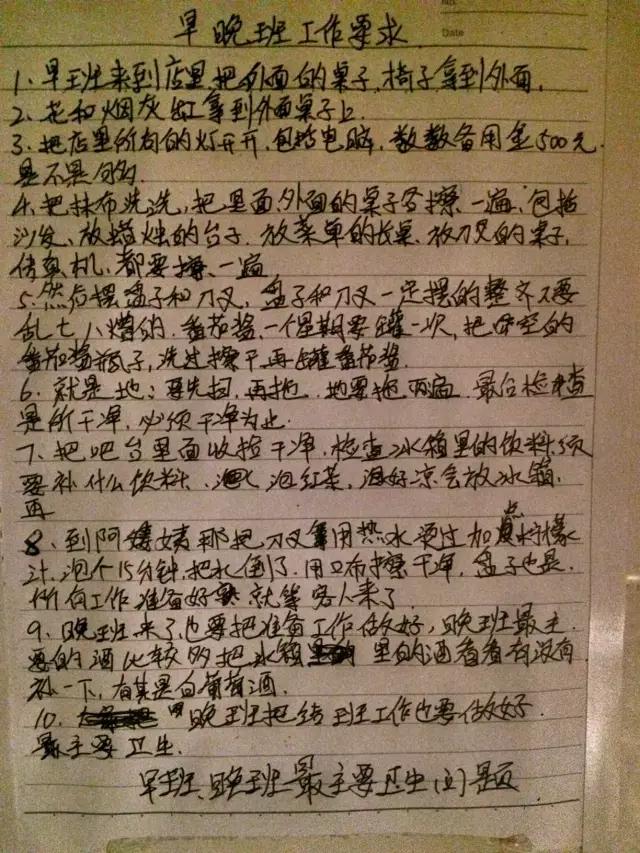 No.
Date
早晚班工作要求
1、早班来到店里,把外面的桌子,椅子拿到外面。
2、花和烟灰缸拿到外面桌子上
3、把店里所有的灯开开,包括电脑,数数备用金500元
是不是够的
4、把抹布洗洗,把里面外面的桌子全擦一遍,包括
沙发、放蜡烛的台子、放菜单的长桌、放刀叉的桌子,
传真机、都要擦一遍
5、然后摆盘子和刀叉,盘子和刀叉一定摆的整齐不要
乱七八糟的、番茄酱,一个星期要罐一次,把空的
番茄酱瓶子,洗过擦干再罐番茄酱.
6、就是地:要先扫,再拖,地要拖两遍,最后检查
是所干净,必须干净为止.
7、把吧台里面收拾干净,检查冰箱里的饮料须
要补什么饮料、泡红茶,泡好凉会放冰箱.
再
8、到阿姨那把刀叉用热水烫过加点
汁,泡个15分钟,把水倒了,用口布擦干净,盘子也是.
所有工作准备好就等客人来了
9、晚班来了,也要把准备工作做好,晚班最主
要的酒比较多把冰箱里的酒看看有没有
补一下,尤其是白葡萄酒.
10、晚班把结班工作也要做好
最主要卫生.
早班、晚班最主要卫生问题